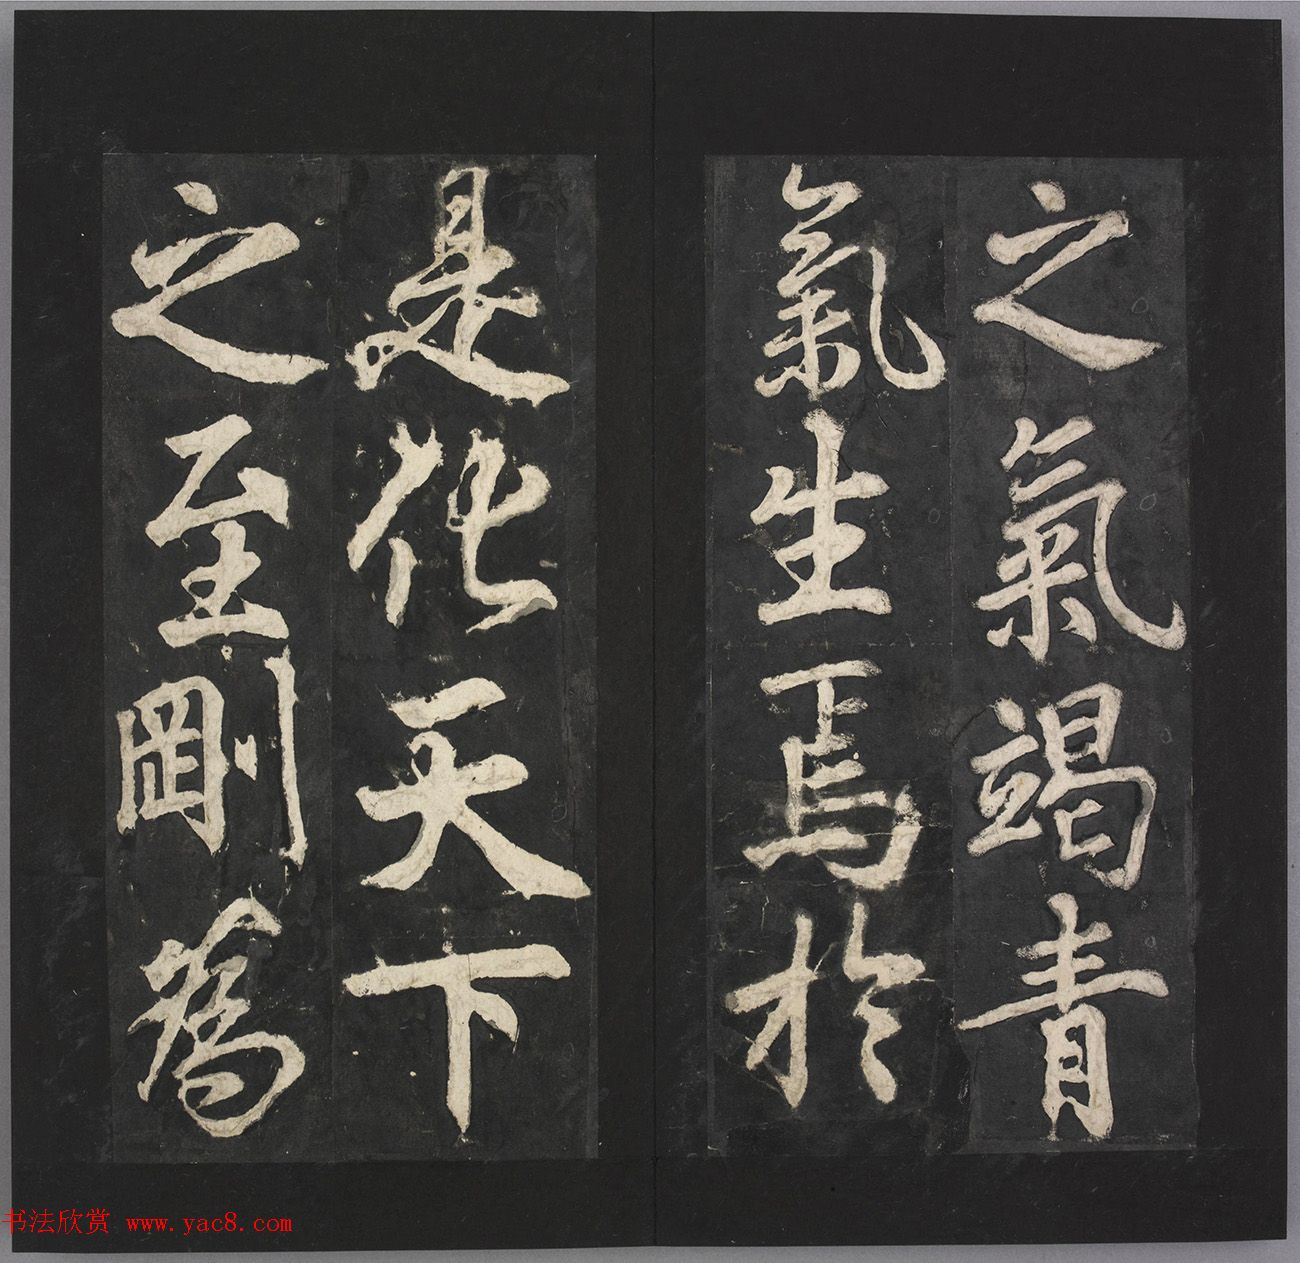 之氣竭青
氣生焉於
是化天下
之至剛為
书法欣赏 www.yac8.com